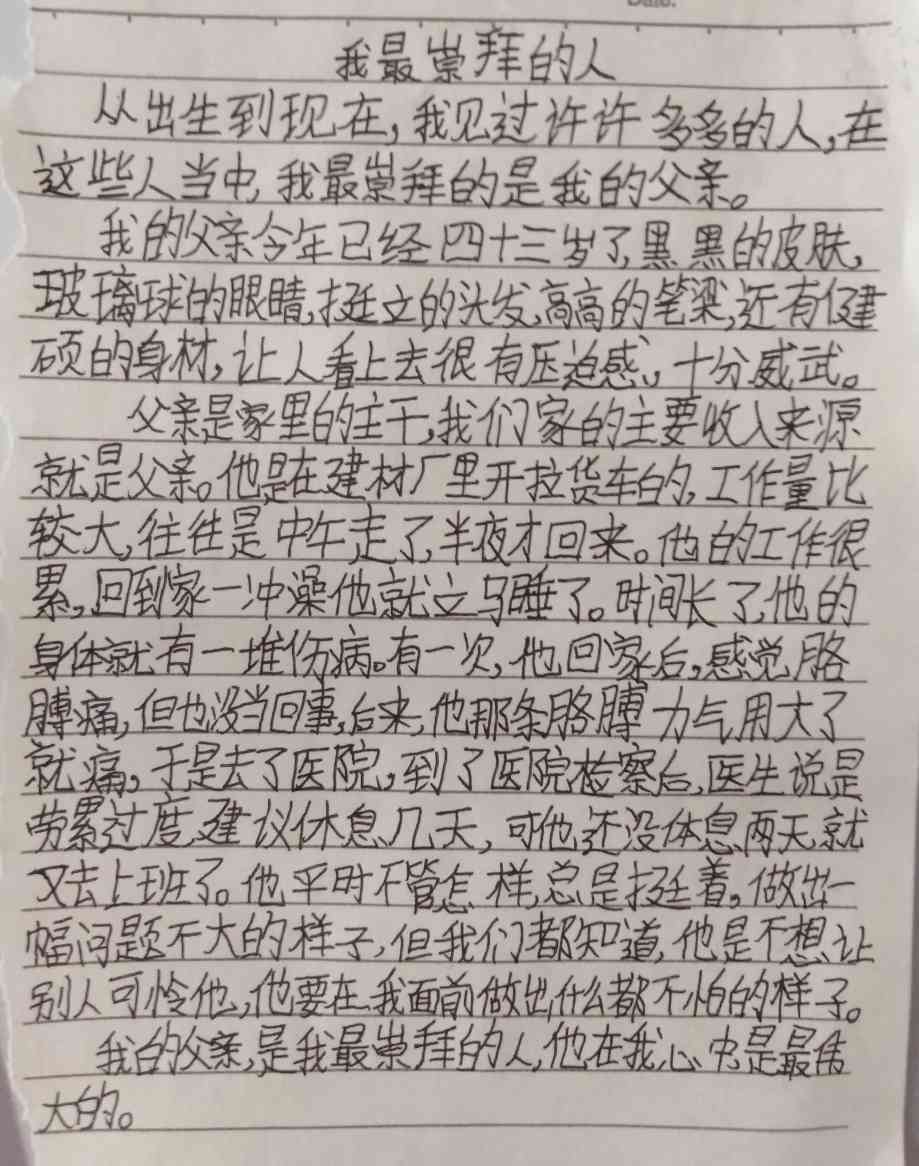 我最崇拜的人
从出生到现在,我见过许许多多的人,在
这些人当中,我最崇拜的是我的父亲。
我的父亲今年已经四十三岁了,黑黑的皮肤,
玻璃球的眼睛,挺立的头发,高高的笔梁,还有健
硕的身材,让人看上去很有压迫感,十分威武。
父亲是家里的主干,我们家的主要收入来源
就是父亲。他是在建材厂里开拉货车的,工作量比
较大,往往是中午走了,半夜才回来。他的工作很
累,回到家一冲澡他就立马睡了。时间长了,他的
身体就有一堆伤病。有一次,他回家后,感觉胳
膊痛,但也没当回事,后来,他那条胳膊力气用大了
就痛,于是去了医院,到了医院检察后,医生说是
劳累过度,建议休息几天,可他还没休息两天就
又去上班了。他平时不管怎样,总是挺着。做出一
幅问题不大的样子,但我们都知道,他是不想让
别人可怜他,他要在我面前做出什么都不怕的样子。
我的父亲,是我最崇拜的人,他在我心中是最伟
大的。